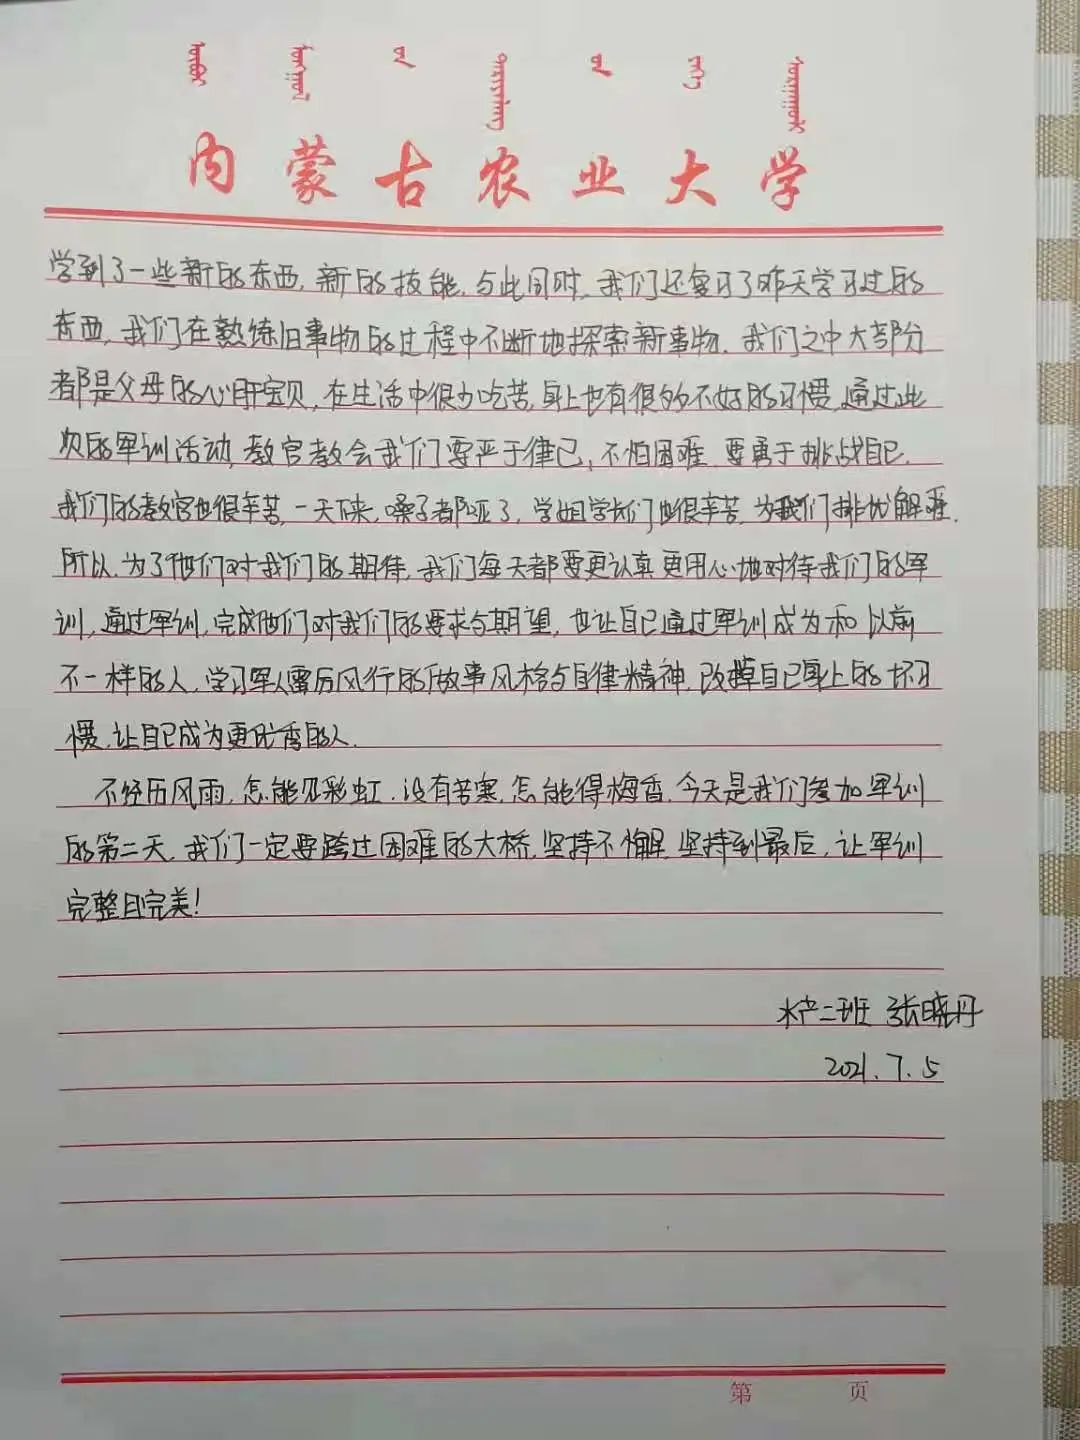 内蒙古农业大学
学到了一些新的东西,新的技能,与此同时,我们还复习了昨天学习过的
东西,我们在熟练旧事物的过程中不断地探索新事物.我们之中大部分
都是父母的心肝宝贝,在生活中很少吃苦,身上也有很多不好的习惯,通过此
次的军训活动,教官教会我们要严于律己,不怕困难,要勇于挑战自己.
我们的教官也很辛苦,一天下来,嗓子都哑了,学姐学长们也很辛苦,为我们排忧解难.
所以,为了他们对我们的期待,我们每天都要更认真更用心地对待我们的军
训,通过军训,完成他们对我们的要求与期望,也让自己通过军训成为和以前
不一样的人,学习军人雷厉风行的做事风格与自律精神,改掉自己身上的坏习
惯,让自己成为更优秀的人.
不经历风雨,怎能见彩虹.没有苦寒,怎能得梅香.今天是我们参加军训
的第二天,我们一定要跨过困难的大桥,坚持不懈,坚持到最后,让军训
完整且完美!
水产二班 张晓丹
2021.7.5
第 页